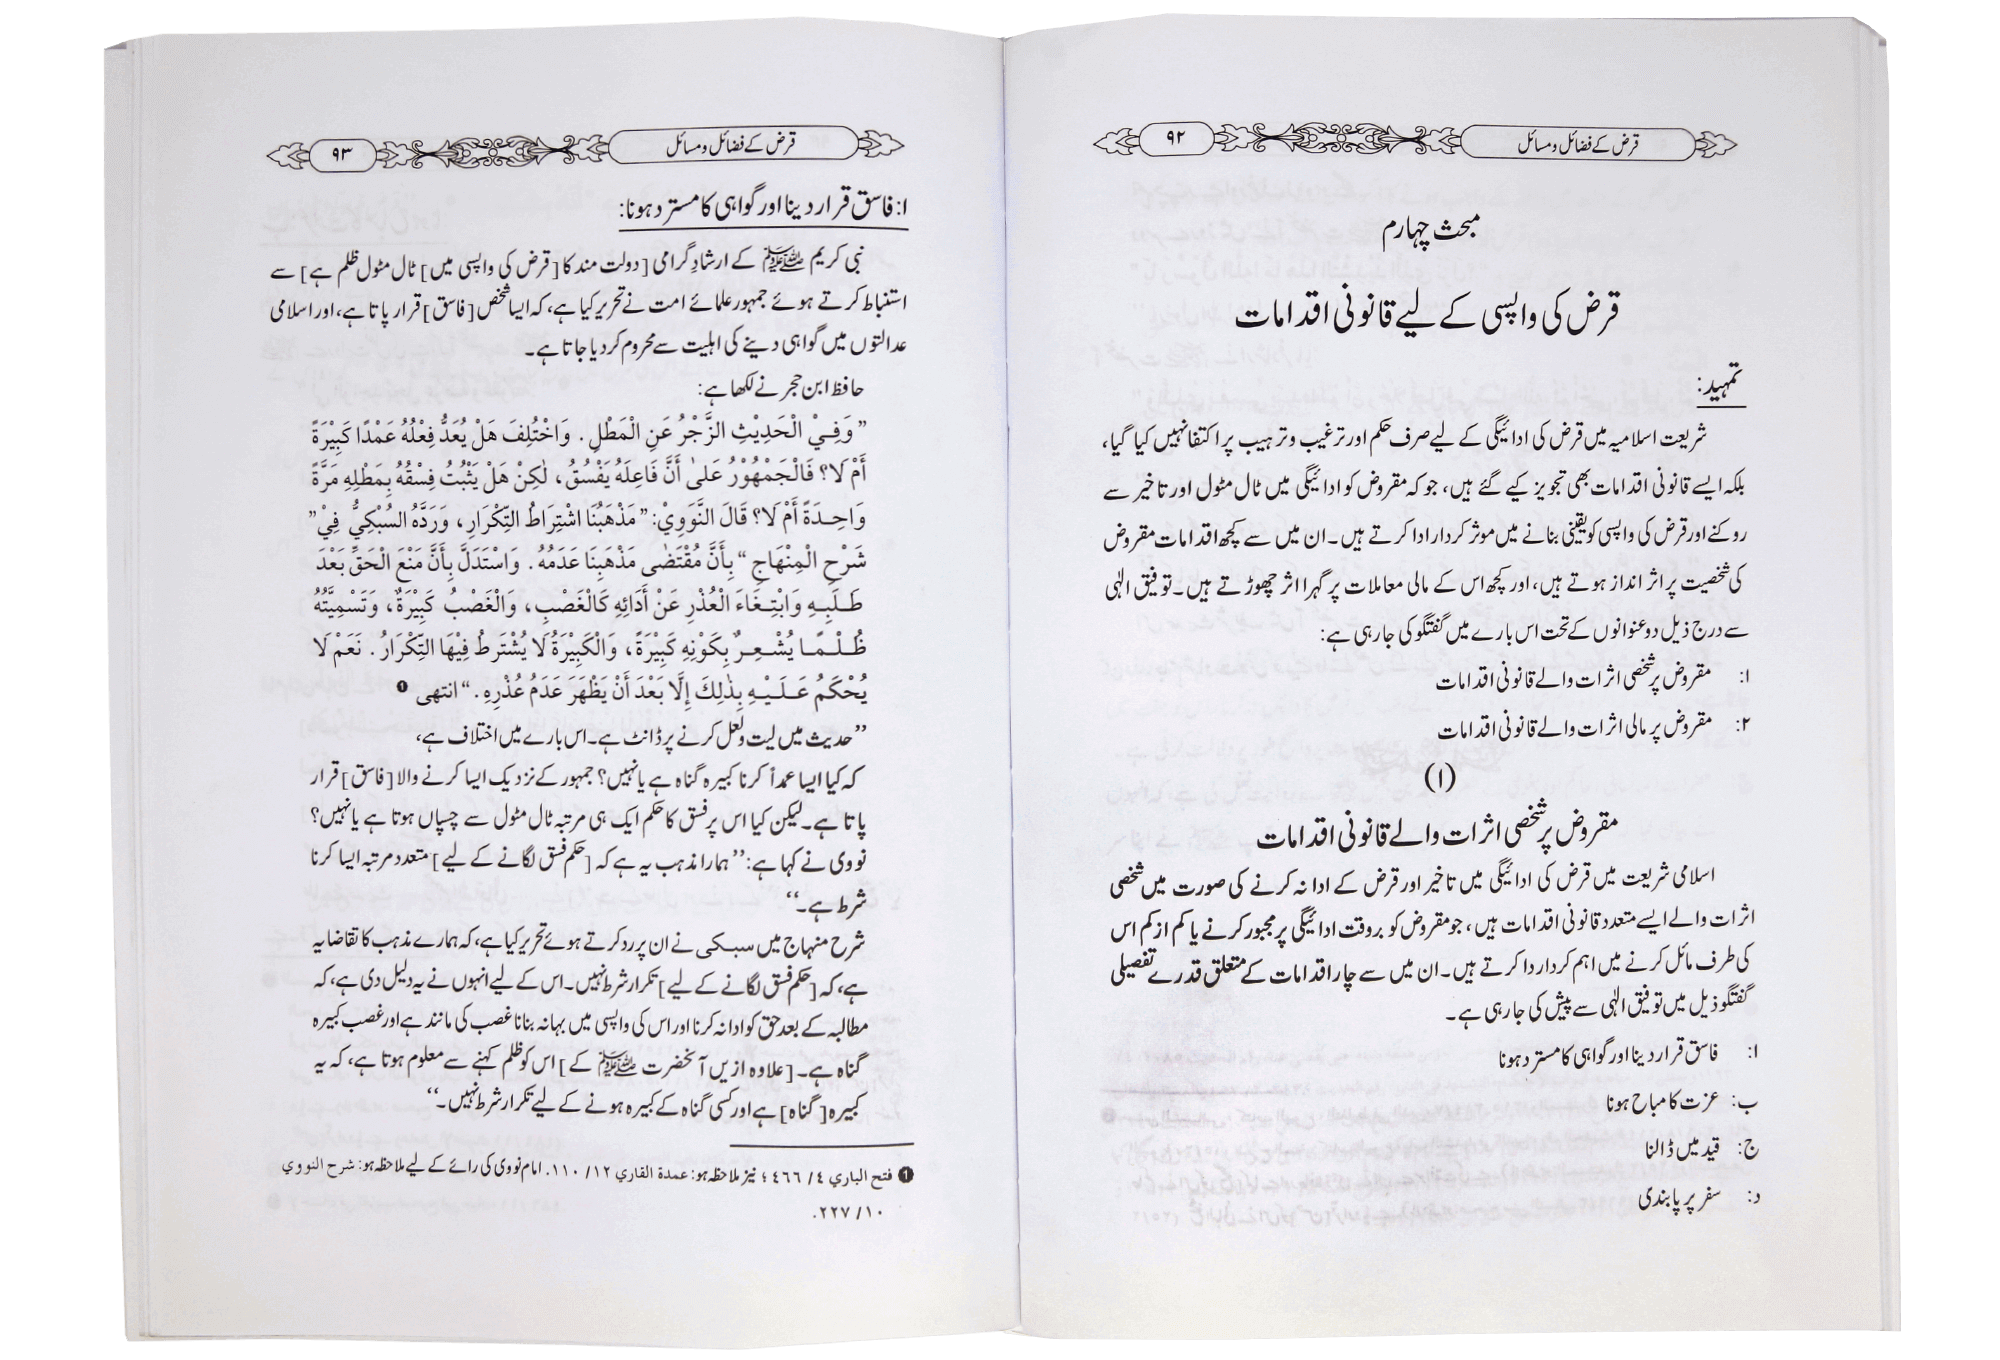 قرض کے فضائل و مسائل
۹۲
مبحث چہارم
قرض کی واپسی کے لیے قانونی اقدامات
تمہید:
شریعت اسلامیہ میں قرض کی ادائیگی کے لیے صرف حکم اور ترغیب و ترہیب پر اکتفا نہیں کیا گیا،
بلکہ ایسے قانونی اقدامات بھی تجویز کیے گئے ہیں، جو کہ مقروض کو ادائیگی میں ٹال مٹول اور تاخیر سے
روکنے اور قرض کی واپسی کو یقینی بنانے میں موثر کردار ادا کرتے ہیں۔ ان میں سے کچھ اقدامات مقروض
کی شخصیت پر اثر انداز ہوتے ہیں، اور کچھ اس کے مالی معاملات پر گہرا اثر چھوڑتے ہیں۔ توفیق الٰہی
سے درج ذیل دو عنوانوں کے تحت اس بارے میں گفتگو کی جا رہی ہے:
۱: مقروض پر شخصی اثرات والے قانونی اقدامات
۲: مقروض پر مالی اثرات والے قانونی اقدامات
(۱)
مقروض پر شخصی اثرات والے قانونی اقدامات
اسلامی شریعت میں قرض کی ادائیگی میں تاخیر اور قرض کے ادا نہ کرنے کی صورت میں شخصی
اثرات والے ایسے متعدد قانونی اقدامات ہیں، جو مقروض کو بروقت ادائیگی پر مجبور کرنے یا کم از کم اس
کی طرف مائل کرنے میں اہم کردار دا کرتے ہیں۔ ان میں سے چار اقدامات کے متعلق قدرے تفصیلی
گفتگو ذیل میں توفیق الٰہی سے پیش کی جا رہی ہے۔
۱: فاسق قرار دینا اور گواہی کا مسترد ہونا
ب: عزت کا مباح ہونا
ج: قید میں ڈالنا
د: سفر پر پابندی
قرض کے فضائل و مسائل
۹۳
۱: فاسق قرار دینا اور گواہی کا مسترد ہونا:
نبی کریم ﷺ کے ارشادِ گرامی [دولت مند کا [قرض کی واپسی میں] ٹال مٹول ظلم ہے] سے
استنباط کرتے ہوئے جمہور علمائے امت نے تحریر کیا ہے، کہ ایسا شخص [فاسق] قرار پاتا ہے، اور اسلامی
عدالتوں میں گواہی دینے کی اہلیت سے محروم کر دیا جاتا ہے۔
حافظ ابن حجر نے لکھا ہے:
”وَفِيْ الْحَدِيْثِ الزَّجْرُ عَنِ الْمَطْلِ. وَاخْتُلِفَ هَلْ يُعَدُّ فِعْلُهُ عَمْدًا كَبِيْرَةً
أَمْ لَا؟ فَالْجَمْهُوْرُ عَلىٰ أَنَّ فَاعِلَهُ يَفْسُقُ، لٰكِنْ هَلْ يَثْبُتُ فِسْقُهُ بِمَطْلِهِ مَرَّةً
وَاحِدَةً أَمْ لَا؟ قَالَ النَّوَوِيْ: ”مَذْهَبُنَا اشْتِرَاطُ التِّكْرَارِ، وَرَدَّهُ السُّبْكِيُّ فِيْ”
شَرْحِ الْمِنْهَاجِ “ بِأَنَّ مُقْتَضٰى مَذْهَبِنَا عَدَمُهُ. وَاسْتَدَلَّ بِأَنَّ مَنْعَ الْحَقِّ بَعْدَ
طَلَبِهِ وَابْتِغَاءَ الْعُذْرِ عَنْ أَدَائِهِ كَالْغَصْبِ، وَالْغَصْبُ كَبِيْرَةٌ، وَتَسْمِيَّتُهُ
ظُلْمًا يُشْعِرُ بِكَوْنِهِ كَبِيْرَةً، وَالْكَبِيْرَةُ لَا يُشْتَرَطُ فِيْهَا التِّكْرَارُ. نَعَمْ لَا
يُحْكَمُ عَلَيْهِ بِذٰلِكَ إِلَّا بَعْدَ أَنْ يَظْهَرَ عَدَمُ عُذْرِهِ.“ انتهى ❶
’’حدیث میں لیت و لعل کرنے پر ڈانٹ ہے۔ اس بارے میں اختلاف ہے،
کہ کیا ایسا عمداً کرنا کبیرہ گناہ ہے یا نہیں؟ جمہور کے نزدیک ایسا کرنے والا [فاسق] قرار
پاتا ہے۔ لیکن کیا اس پر فسق کا حکم ایک ہی مرتبہ ٹال مٹول سے چسپاں ہوتا ہے یا نہیں؟
نووی نے کہا ہے: ’’ہمارا مذہب یہ ہے کہ [حکم فسق لگانے کے لیے] متعدد مرتبہ ایسا کرنا
شرط ہے۔‘‘
شرح منہاج میں سبکی نے ان پر رد کرتے ہوئے تحریر کیا ہے، کہ ہمارے مذہب کا تقاضا یہ
ہے، کہ [حکم فسق لگانے کے لیے] تکرار شرط نہیں۔ اس کے لیے انہوں نے یہ دلیل دی ہے، کہ
مطالبہ کے بعد حق کو ادا نہ کرنا اور اس کی واپسی میں بہانہ بنانا غصب کی مانند ہے اور غصب کبیرہ
گناہ ہے۔ [علاوہ ازیں آنحضرت ﷺ کے] اس کو ظلم کہنے سے معلوم ہوتا ہے، کہ یہ
کبیرہ [گناہ] ہے اور کسی گناہ کے کبیرہ ہونے کے لیے تکرار شرط نہیں۔‘‘
❶ فتح الباري ٤/ ٤٦٦؛ نیز ملاحظہ ہو: عمدة القاري ١٢/ ١١٠. امام نووی کی رائے کے لیے ملاحظہ ہو: شرح النووي
١٠/ ٢٢٧.